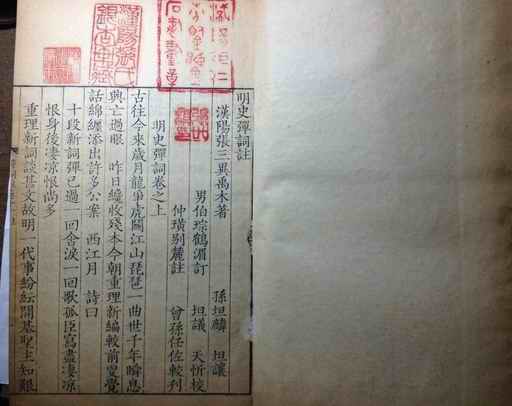 明史彈詞註
漢陽張三異禹木著
孫坦麟 坦讓
男伯琮鶴湄訂 坦議 天忻校
仲璜別麓註 曾孫任佐較刊
明史彈詞卷之上
古往今來歲月龍爭虎鬭江山琵琶一曲世千年瞬息
興亡過眼 昨日纔收殘本今朝重理新編較前更覺
話綿纏添出許多公案 西江月 詩曰
十段新詞彈已過一回含淚一回歌孤臣寫盡凄凉
恨身後凄凉恨尚多
重理新詞談舊文故明一代事紛紜開基聖主知艱